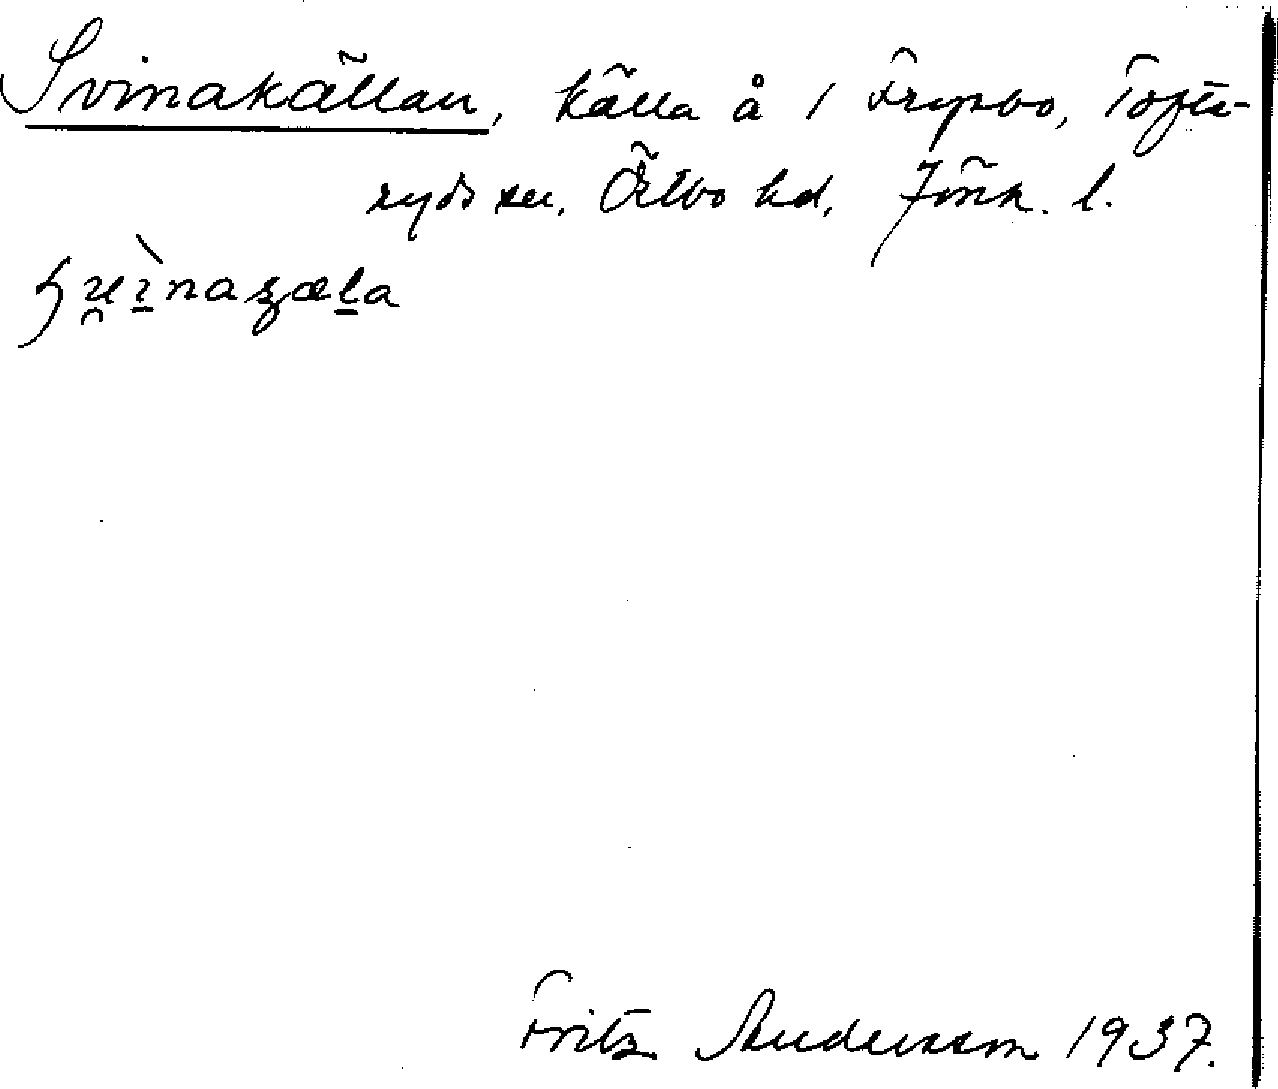 Svinakällan, källa å 1 Frysbo, Tofte-
ryds sn. Östbo hd, Jönk. l.
Fritz Andersson 1937.